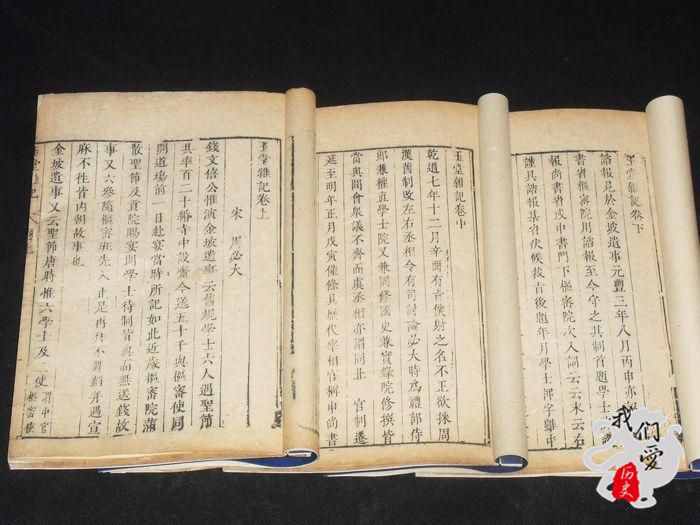 玉堂雜記卷上
宋 周必大
錢文僖公惟演金坡遺事云舊規學士六人遇聖節
共率百二十緡寺中設齋今送五十千與樞密使同
開道場前一日赴宴當時所記如此近歲樞密院滿
散聖節及貢院賜宴則學士待制皆與而無送錢故
事又六參隔樞密班先入止是再拜不舞蹈并遇宣
麻不徃皆内朝故事也
金坡遺事又云聖節唐時惟六學士及二使謂中官樞密使
玉堂雜記卷中
乾道七年十二月辛酉有旨僕射之名不正欲採周
漢舊制改左右丞相令有司討論必大時為禮部侍
郎兼權直學士院又兼同修國史兼實錄院修撰皆
當與聞會衆議不齊而虞丞相亦謂官制遷
延至明年正月戊寅僅條具歷代宰相官稱申尚書
玉堂雜記卷下
諮報見於金坡遺事元豐三年八月丙申亦
書省樞密院用諮報至今守之其制首題學士
報尚書省或中書門下樞密院次入詞云云末云右
謹具諮報某官伏候裁旨後題年月學士押字雖中
我們愛
历史